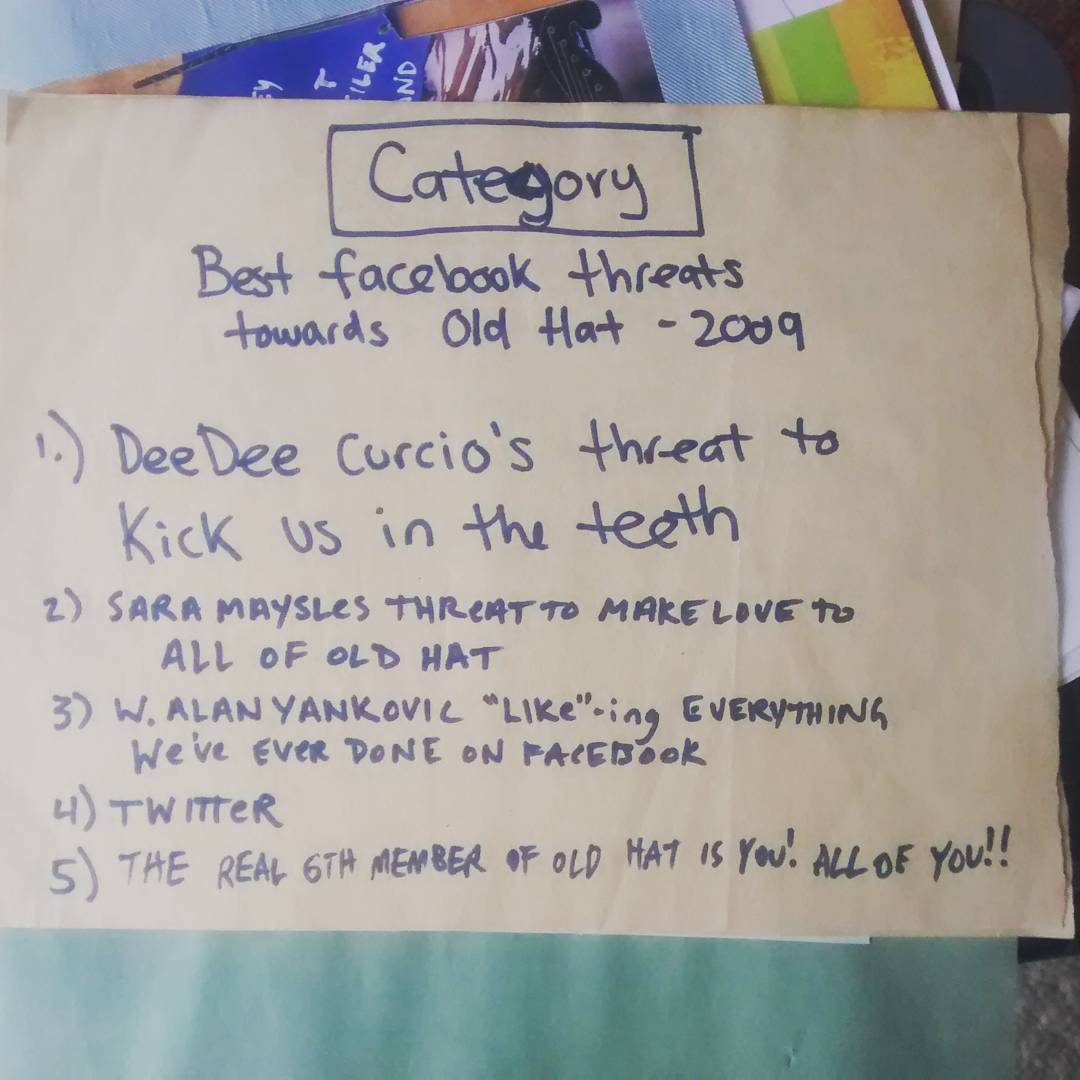 EY
T
EILER
AND
Category
Best facebook threats
towards Old Hat - 2009
1.) DeeDee Curcio's threat to
Kick us in the teeth
2) SARA MAYSLES THREAT TO MAKE LOVE TO
ALL OF OLD HAT
3) W. ALAN YANKOVIC "LIKE"-ing EVERYTHING
We've EVER DONE ON FACEBOOK
4) TWITTER
5) THE REAL 6TH MEMBER OF OLD HAT IS YOU! ALL OF YOU!!